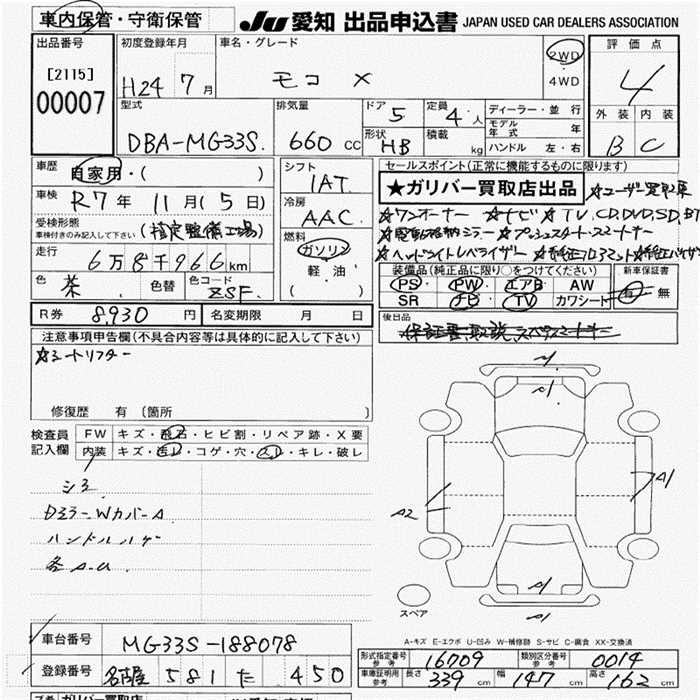 車内保管・守衛保管 JU 愛知 出品申込書 JAPAN USED CAR DEALERS ASSOCIATION
出品番号 初度登録年月 車名・グレード 2WD 評価点
[2115] H24 7月 モコ X 4WD 4
00007 型式 排気量 ドア 5 定員 4人 ディーラー・並行 外装 内装
DBA-MG33S. 660cc 形状 HB 積載 kg モデル年式 年 B C
ハンドル 左・右
車歴 自家用・( ) シフト セールスポイント(正常に機能するものに限ります)
車検 R7年 11月(5日) IAT ★ガリバー買取店出品 ☆ユーザー買取車
受検形態 冷房 ☆ワンオーナー ☆ナビ ☆TV,CD,DVD,SD,BT
車検付きのみ記入して下さい (指定整備工場) AAC ☆電動格納ミラー ☆プッシュスタートスマートキー
走行 6万8千966km 燃料 ☆ヘッドライトレベライザー
色 茶 色替 色コード ZSF. ガソリン 装備品(純正品に限り○をつけてください) 新車保証書
軽油 PS・PW・エアB・AW 有・無
( ) SR ナビ・TV・カワシート
R券 8,930円 名変期限 月 日 後日品
注意事項申告欄(不具合内容等は具体的に記入して下さい) 保証書,取説,スペアスマートキー
☆シートリフター
修復歴 有 〔箇所 〕
検査員 FW キズ・飛石・ヒビ割・リペア跡・X要
記入欄 内装 キズ・汚レ・コゲ・穴・スレ・キレ・破レ
シミ
DミラーWカバーA
ハンドルハゲ
各A.U
A2
A1
スペア
A-キズ E-エクボ U-凹み W-補修跡 S-サビ C-腐食 XX-交換済
車台番号 MG33S-188078
登録番号 名古屋 581 た 450
形式指定番号 参考 16709 類別区分番号 参考 0014
車庫証明用 参考 長さ 339cm 幅 147cm 高さ 162cm
ガリバー買取店